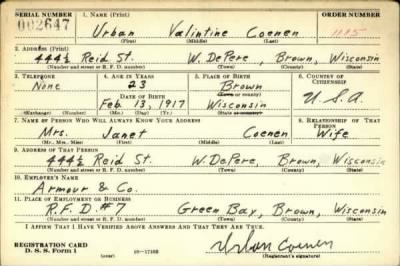 SERIAL NUMBER 1. NAME (Print) ORDER NUMBER
002647 Urban Valintine Coenen 1115
(First) (Middle) (Last)
2. ADDRESS (Print)
444½ Reid St. W. DePere, Brown, Wisconsin
(Number and street or R. F. D. number) (Town) (County) (State)
3. TELEPHONE 4. AGE IN YEARS 5. PLACE OF BIRTH 6. COUNTRY OF CITIZENSHIP
None 23 Brown
DATE OF BIRTH (Town or county)
Feb. 13, 1917 Wisconsin U.S.A.
(Exchange) (Number) (Mo.) (Day) (Yr.) (State or country)
7. NAME OF PERSON WHO WILL ALWAYS KNOW YOUR ADDRESS 8. RELATIONSHIP OF THAT PERSON
Mrs. Janet Coenen Wife
(Mr., Mrs., Miss) (First) (Middle) (Last)
9. ADDRESS OF THAT PERSON
444½ Reid St. W. DePere, Brown, Wisconsin
(Number and street or R. F. D. number) (Town) (County) (State)
10. EMPLOYER'S NAME
Armour & Co.
11. PLACE OF EMPLOYMENT OR BUSINESS
R.F.D. #7 Green Bay, Brown, Wisconsin
(Number and street or R. F. D. number) (Town) (County) (State)
I AFFIRM THAT I HAVE VERIFIED ABOVE ANSWERS AND THAT THEY ARE TRUE.
REGISTRATION CARD Urban Coenen
D. S. S. Form 1 (over) (Registrant's signature)